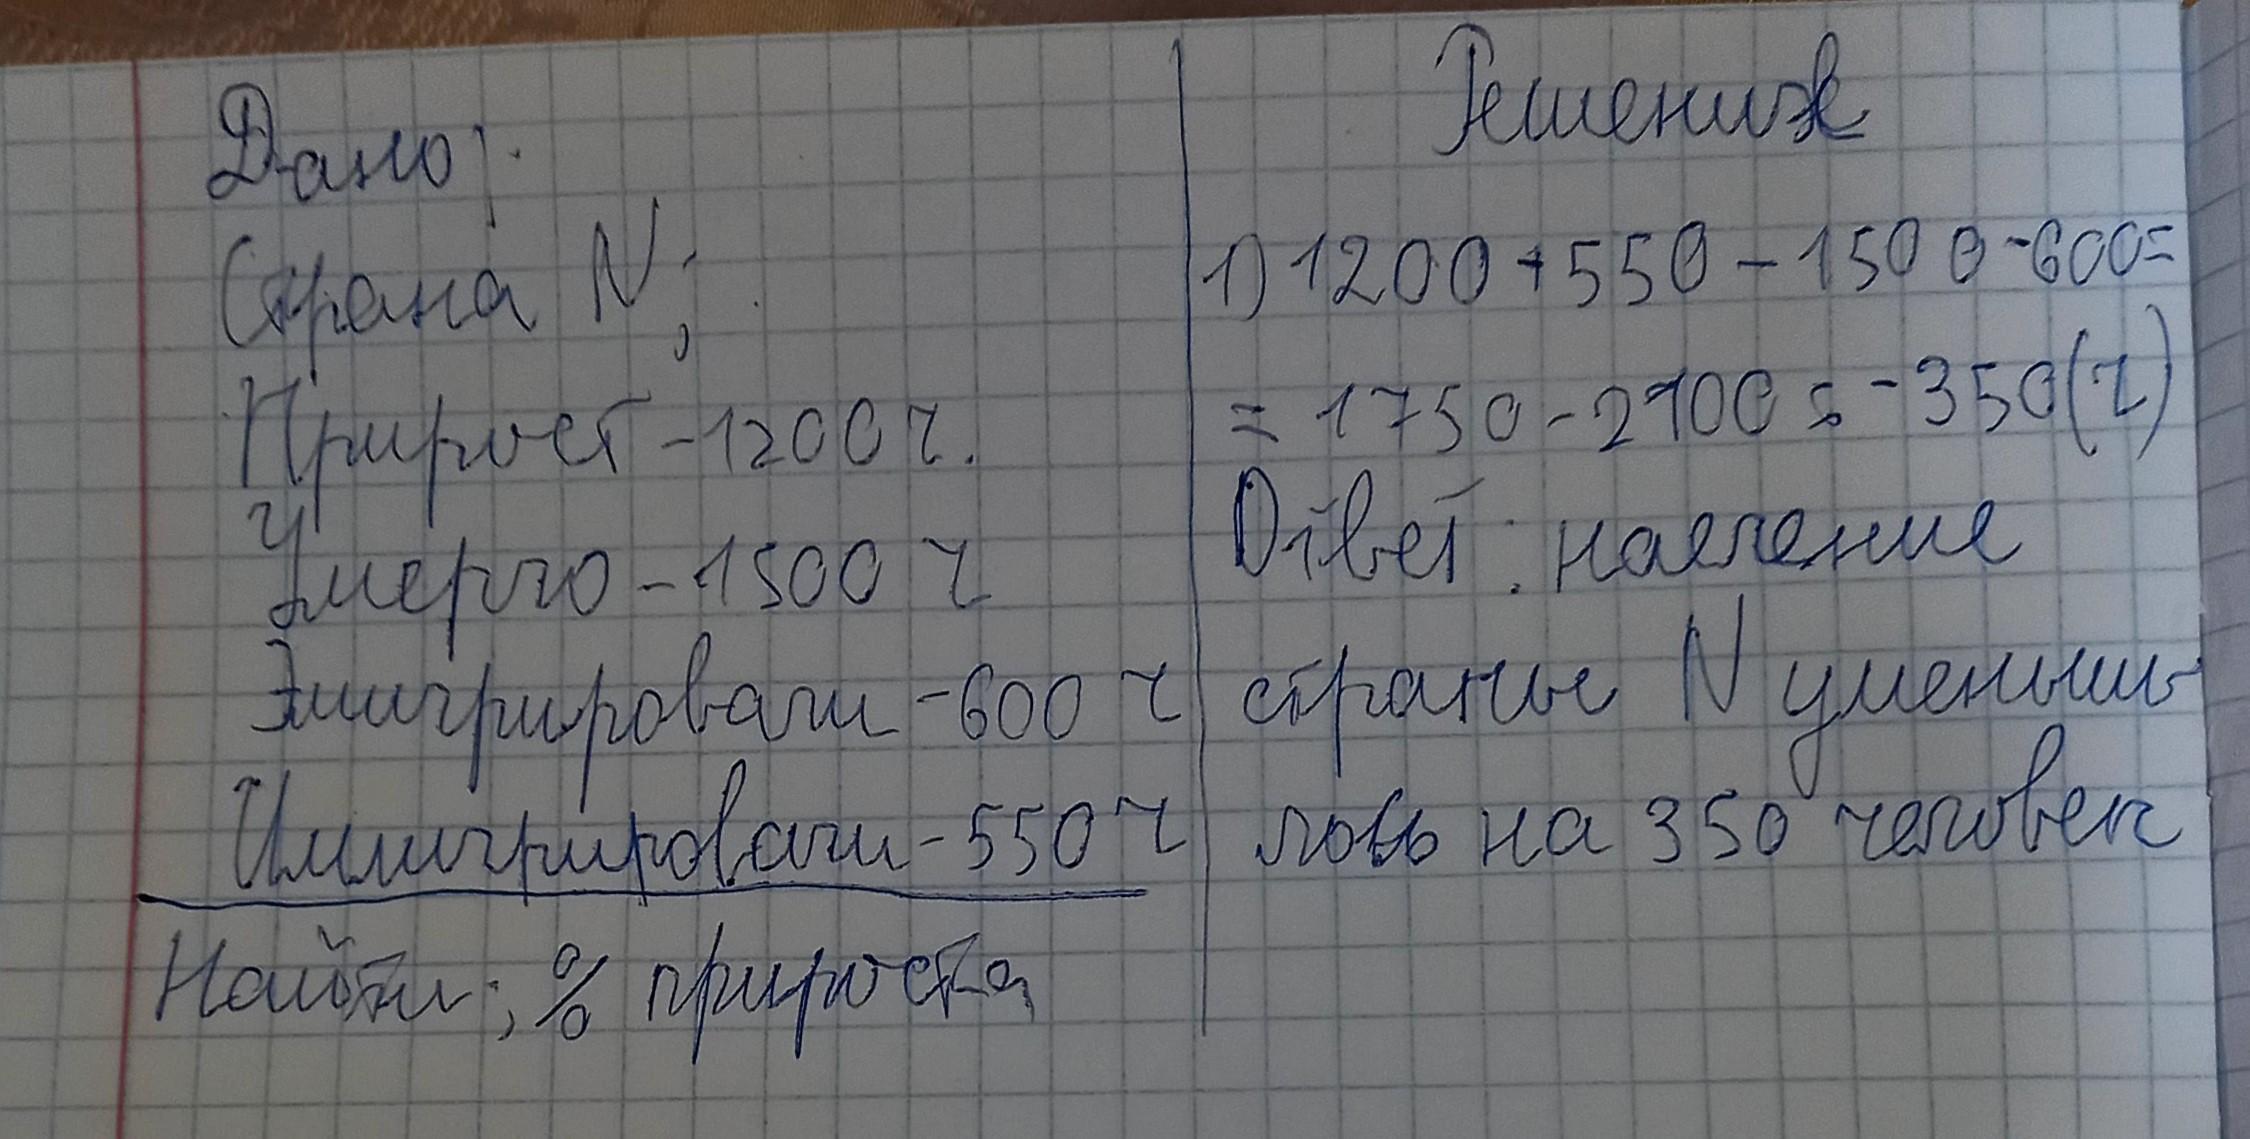 Дано:
Страна N;
Прирост - 1200 ч.
Умерло - 1500 ч
Эмигрировали - 600 ч
Иммигрировали - 550 ч
Найти; % прироста
Решение
1) 1200 + 550 - 1500 - 600 =
= 1750 - 2100 = -350 (ч)
Ответ: население
страны N уменьши
лось на 350 человек